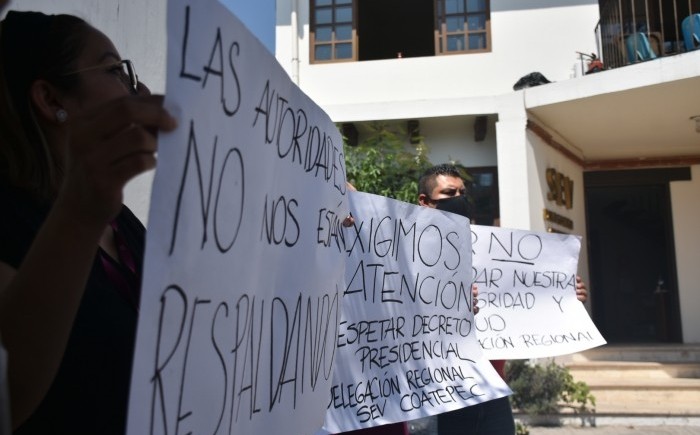 LAS AUTORIDADES
NO NOS ESTÁN
RESPALDANDO
EXIGIMOS
ATENCIÓN
RESPETAR DECRETO
PRESIDENCIAL
DELEGACIÓN REGIONAL
SEV COATEPEC
NO
NUESTRA
Y
REGIONAL
SEV